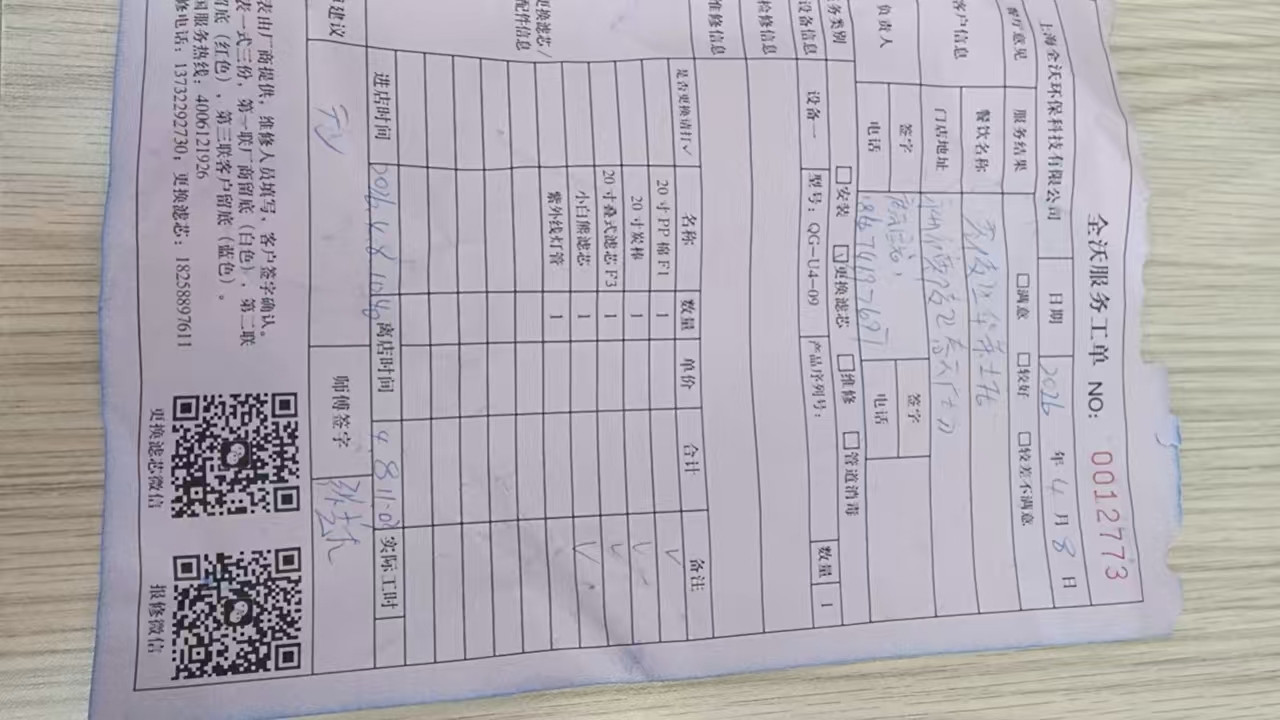 全沃服务工单 NO: 0012773
上海全沃环保科技有限公司 日期 2026 年 4 月 8 日
客厅意见 服务结果 □满意 □较好 □较差不满意
客户信息 餐饮名称
门店地址
负责人 签字 签字
电话 电话
务类别 □安装 ☑更换滤芯 □维修 □管道消毒
设备信息 设备一 型号: QG-U4-09 产品序列号: 数量 1
检修信息
维修信息
更换滤芯/配件信息 是否更换请打✓ 名称 数量 单价 合计 备注
20寸PP棉F1 1 ✓
20寸炭棒 1 ✓
20寸叠式滤芯F3 1 ✓
小白熊滤芯 1 ✓
紫外线灯管 1
进店时间 2026.4.8 离店时间 4.8 实际工时
建议 师傅签字
表由厂商提供,维修人员填写,客户签字确认。
表一式三份,第一联厂商留底(白色),第二联
留底(红色),第三联客户留底(蓝色)。
国服务热线: 4006121926
修电话: 13732292730, 更换滤芯: 18258897611
更换滤芯微信 报修微信